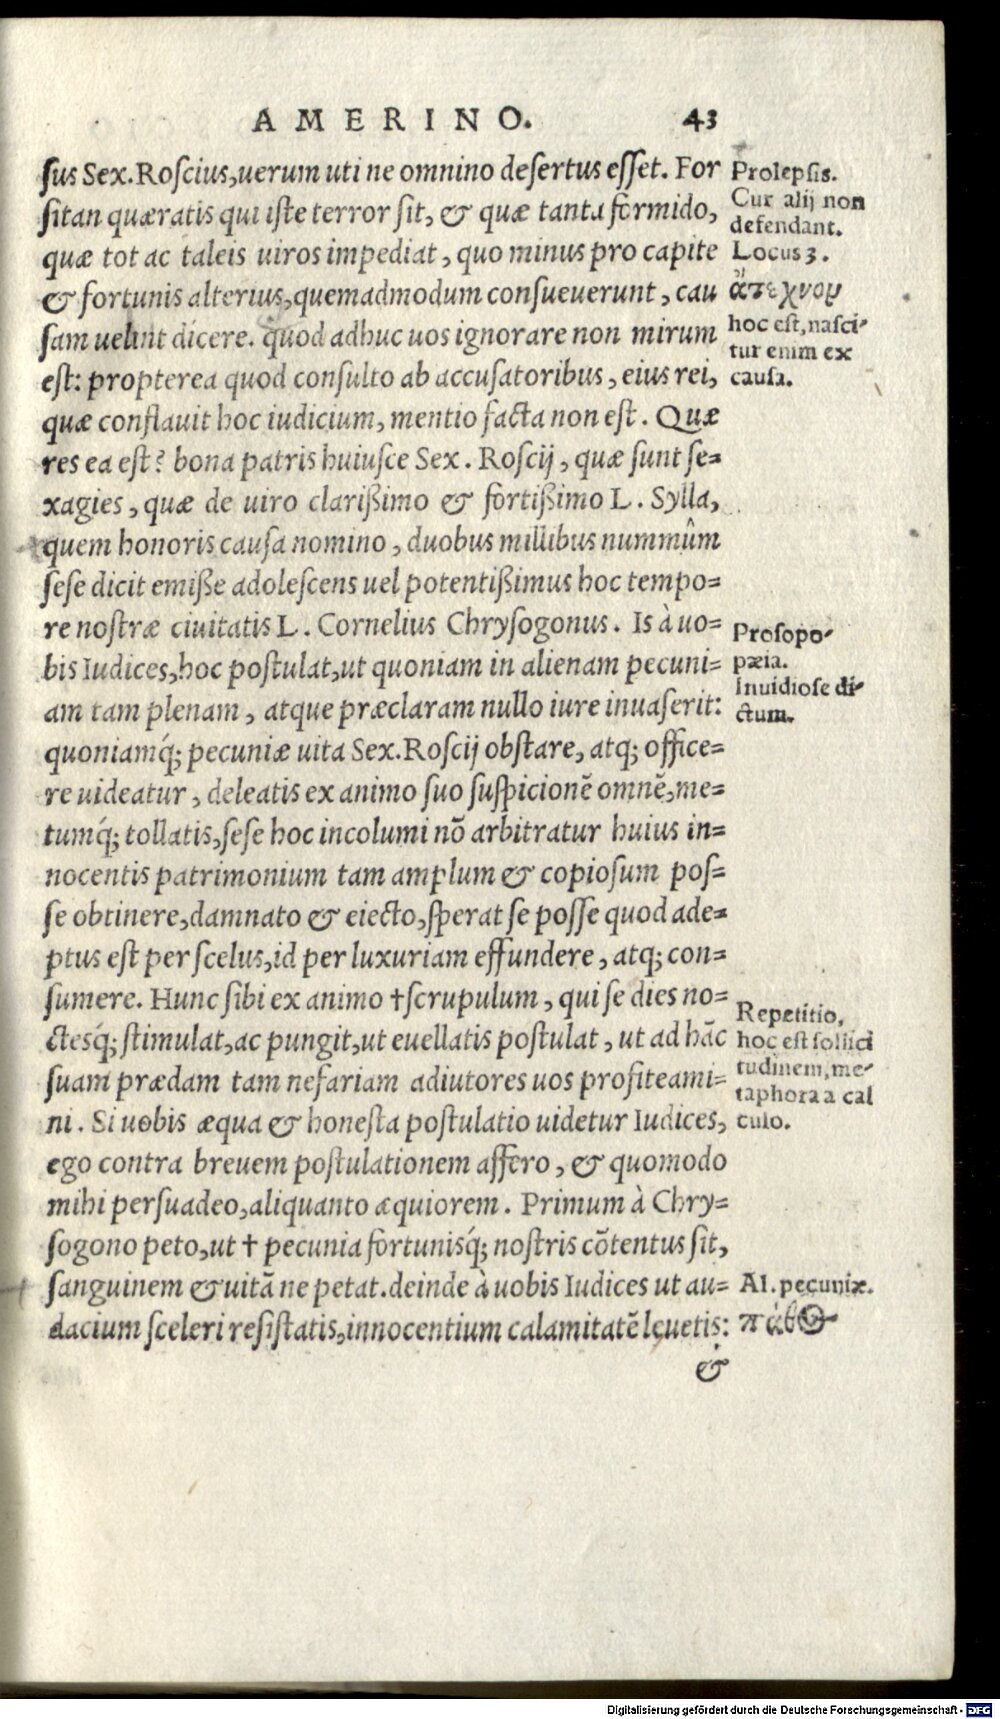 AMERINO. 43
sus Sex. Roscius, uerum uti ne omnino desertus esset. For
sitan quæratis qui iste terror sit, & quæ tanta formido,
quæ tot ac taleis uiros impediat, quo minus pro capite
& fortunis alterius, quemadmodum consueuerunt, cau
sam uelint dicere. quod adhuc uos ignorare non mirum
est: propterea quod consulto ab accusatoribus, eius rei,
quæ conflauit hoc iudicium, mentio facta non est. Quæ
res ea est? bona patris huiusce Sex. Roscij, quæ sunt se=
xagies, quæ de uiro clarißimo & fortißimo L. Sylla,
quem honoris causa nomino, duobus millibus nummûm
sese dicit emiße adolescens uel potentißimus hoc tempo=
re nostræ ciuitatis L. Cornelius Chrysogonus. Is à uo=
bis Iudices, hoc postulat, ut quoniam in alienam pecuni=
am tam plenam, atque præclaram nullo iure inuaserit:
quoniamq́; pecuniæ uita Sex. Roscij obstare, atq; office=
re uideatur, deleatis ex animo suo suspicionē omnē, me=
tumq́; tollatis, sese hoc incolumi nō arbitratur huius in=
nocentis patrimonium tam amplum & copiosum pos=
se obtinere, damnato & eiecto, sperat se posse quod ade=
ptus est per scelus, id per luxuriam effundere, atq; con=
sumere. Hunc sibi ex animo †scrupulum, qui se dies no=
ctesq́; stimulat, ac pungit, ut euellatis postulat, ut ad hāc
suam prædam tam nefariam adiutores uos profiteami=
ni. Si uobis æqua & honesta postulatio uidetur Iudices,
ego contra breuem postulationem affero, & quomodo
mihi persuadeo, aliquanto æquiorem. Primum à Chry=
sogono peto, ut † pecunia fortunisq́; nostris cōtentus sit,
sanguinem & uitā ne petat. deinde à uobis Iudices ut au=
dacium sceleri resistatis, innocentium calamitatē leuetis:
&
Prolepsis.
Cur alij non
defendant.
Locus 3.
ἄτεχνον
hoc est, nasci-
tur enim ex
causa.
Prosopo-
pæia.
Inuidiose di-
ctum.
Repetitio,
hoc est sollici
tudinem, me-
taphora a cal
culo.
Al. pecuniæ.
πάθος
Digitalisierung gefördert durch die Deutsche Forschungsgemeinschaft - DFG